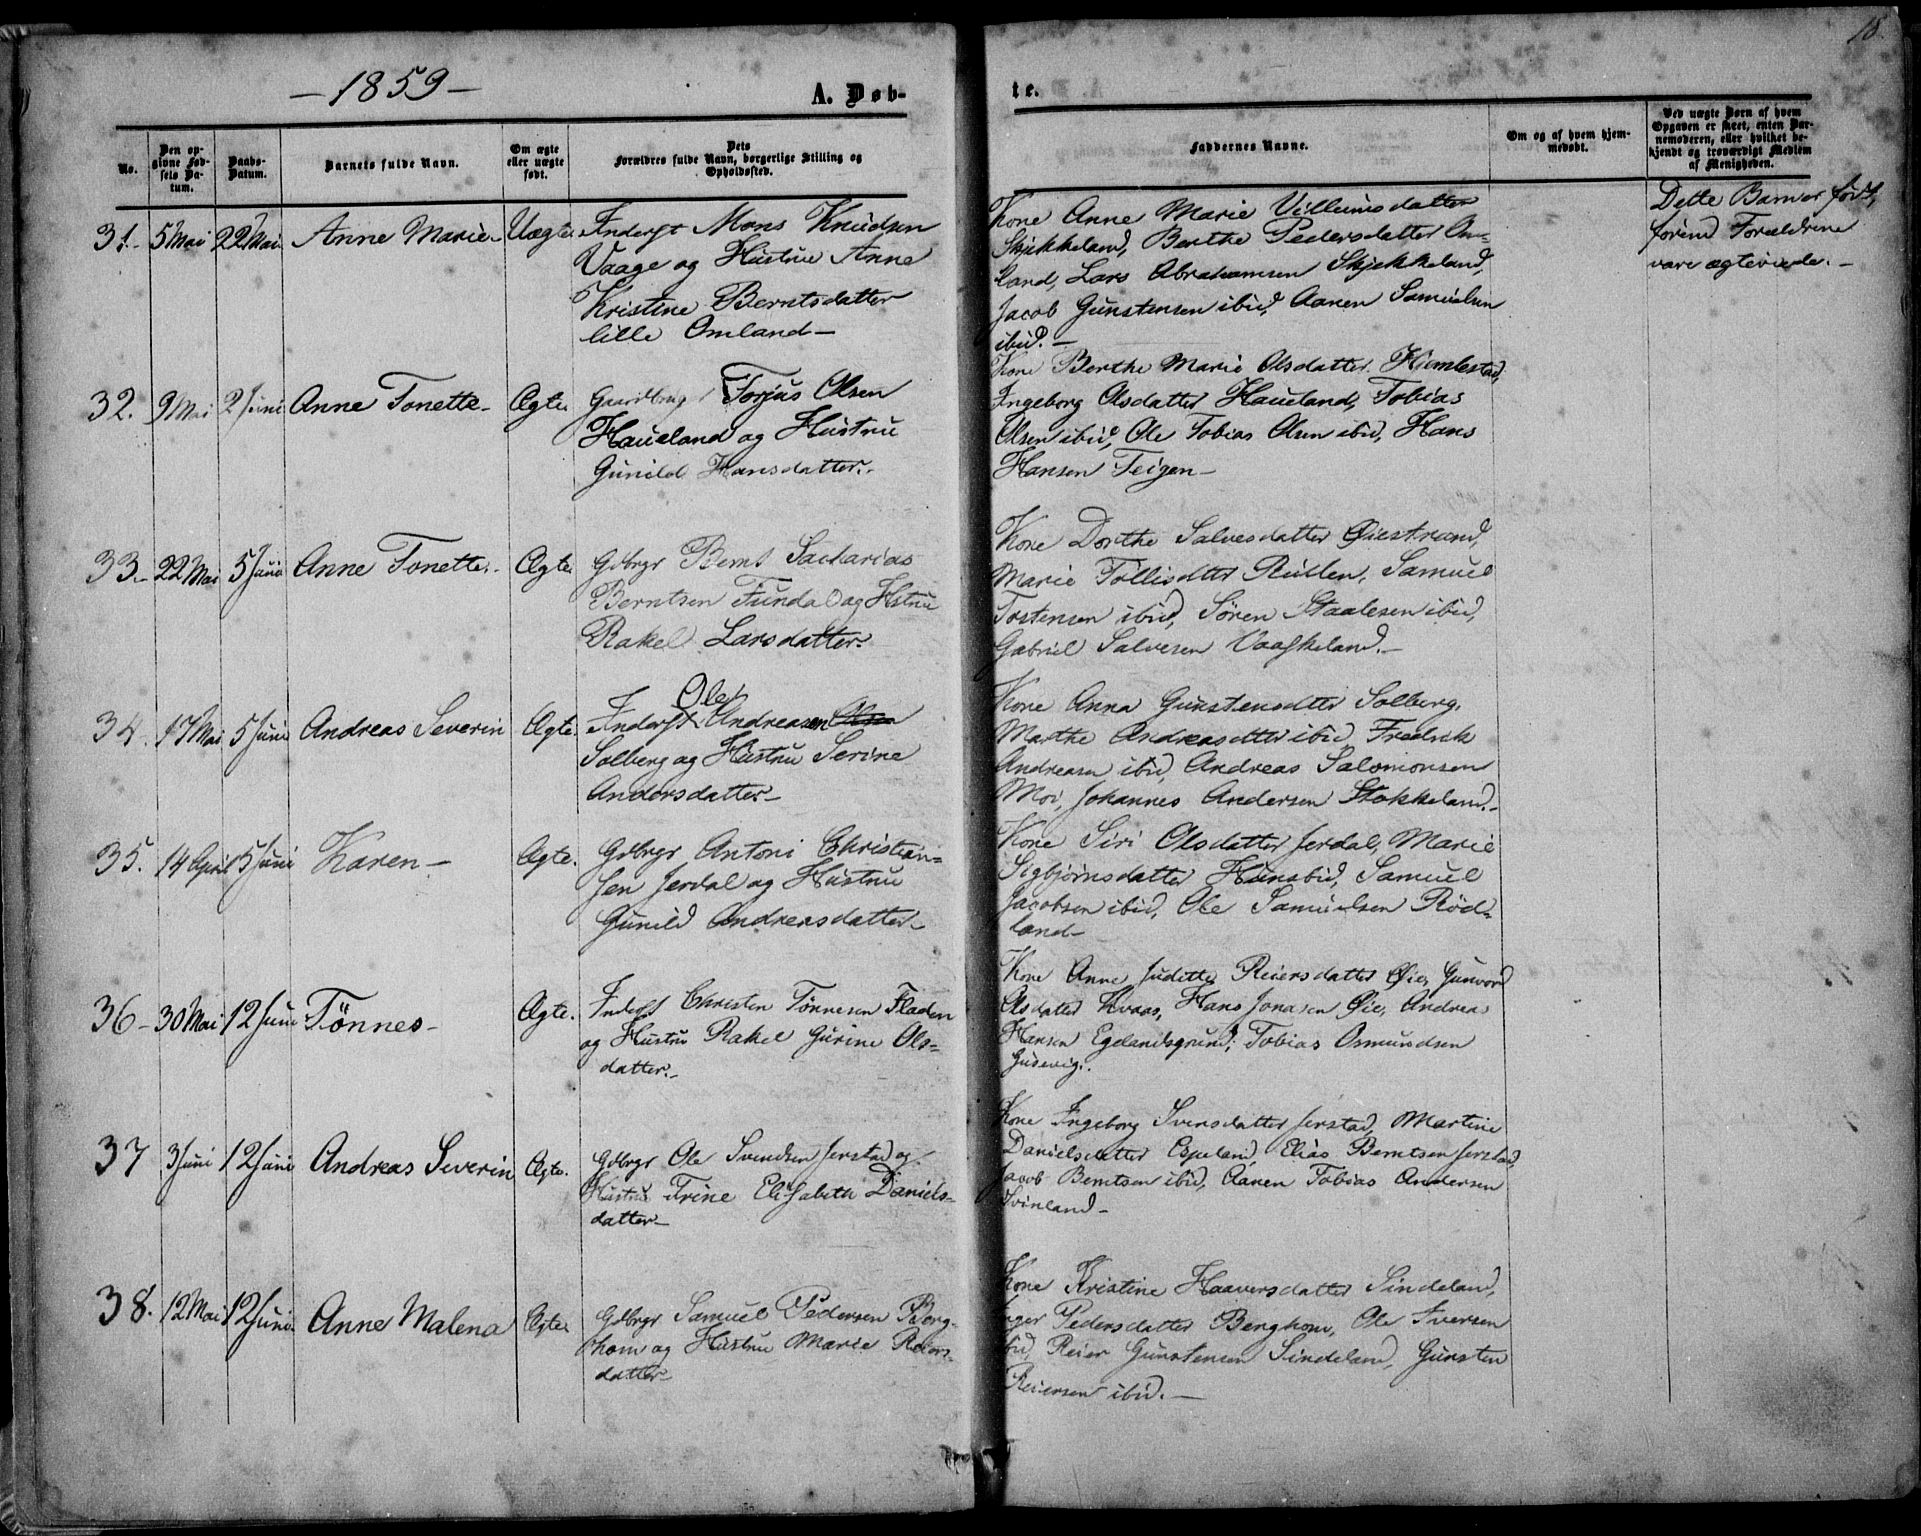 18.
— 1859 —
A. Døb-
te.
No.
Den op-
givne Fød-
sels Da-
tum.
Daabs-
Datum.
Barnets fulde Navn.
Om ægte
eller uægte
født.
Dets
Forældres fulde Navn, borgerlige Stilling og
Opholdssted.
Faddernes Navne.
Om og af hvem hjem-
medøbt.
Ved uægte Børn af hvem
Opgaven er skeet, enten Bar-
nemoderen, eller hvilket be-
kjendt og troværdigt Medlem
af Menigheden.
31.- 5 Mai 22 Mai Anne Marie- Uægte
Inderst Mons Knudsen
Vaage og Hustru Anne
Kristine Berntsdatter
lille Omland —
Kone Anne Marie Villumsdatter
Skjekkeland, Berthe Pedersdatter Om-
land, Lars Abrahamsen Skjekkeland,
Jacob Gunstensen ibid, Aanen Samuelsen
ibid. —
Dette Barn er født,
førend Forældrene
vare ægteviede. —
32. 9 Mai 2 Juni Anne Tonette- Ægte
Gaardbrug Torjus Olsen
Haueland og Hustru
Gunild Hansdatter.-
Kone Berthe Marie Olsdatter Hiemlestad,
Ingeborg Olsdatter Haueland, Tobias
Olsen ibid, Ole Tobias Olsen ibid, Hans
Hansen Teigen —
33.- 22 Mai 5 Juni Anne Tonette.- Ægte
Gdbrgr Bernt Sacharias
Berntsen Fundal og Hstru
Rakel Larsdatter.
Kone Dorthe Salvesdatter Øiestrand,
Marie Tollisdtter Rullen, Samuel
Tostensen ibid, Søren Staalesen ibid,
Gabriel Salvesen Vaaskeland. —
34. 17 Mai 5 Juni Andreas Severin Ægte.
Ole
Inderst Andreasen Olsen
Solberg og Hustru Serine
Andersdatter —
Kone Anna Gunstensdtter Solberg,
Marthe Andreasdtter ibid Fredrik
Andreasen ibid, Andreas Salomonsen
Moi, Johannes Andersen Stokkeland.-
35. 14 April 5 Juni Karen — Ægte.
Gdbrgr Antoni Christian-
sen Jerdal og Hustru
Gunild Andreasdatter-
Kone Siri Olsdatter Jerdal, Marie
Sigbjørnsdatter Hunsbid, Samuel
Jacobsen ibid, Ole Samuelsen Rød-
land-
36- 30 Mai 12 Juni Tönnes- Ægte.
Inderst Christen Tønnesen Fladen
og Hustru Rakel Gurine Ols-
datter.-
Kone Anne Juditte Reiersdatter Øie, Gunvord
Olsdatter Kvaas, Hans Jonasen Øie, Andreas
Hansen Egelandsgrund, Tobias Osmundsen
Gusevig.
37 3 Juni 12 Juni Andreas Severin Ægte.
Gdbrgr Ole Svendsen Jerstad og
Hustru Trine Elisabeth Daniels-
datter —
Kone Ingeborg Svensdatter Jerstad, Martine
Danielsdatter Espeland, Elias Berntsen Jerstad,
Jacob Berntsen ibid, Aanen Tobias Andersen
Svinland —
38. 12 Mai 12 Juni Anne Malena Ægte
Gdbrgr Samuel Pedersen Berg-
hom og Hustru Marie Reiers-
datter
Kone Kristine Haaversdatter Sindeland,
Inger Pedersdatter Berghom, Ole Iversen
ibid, Reier Gunstensen Sindeland, Gunsten
Reiersen ibid. —